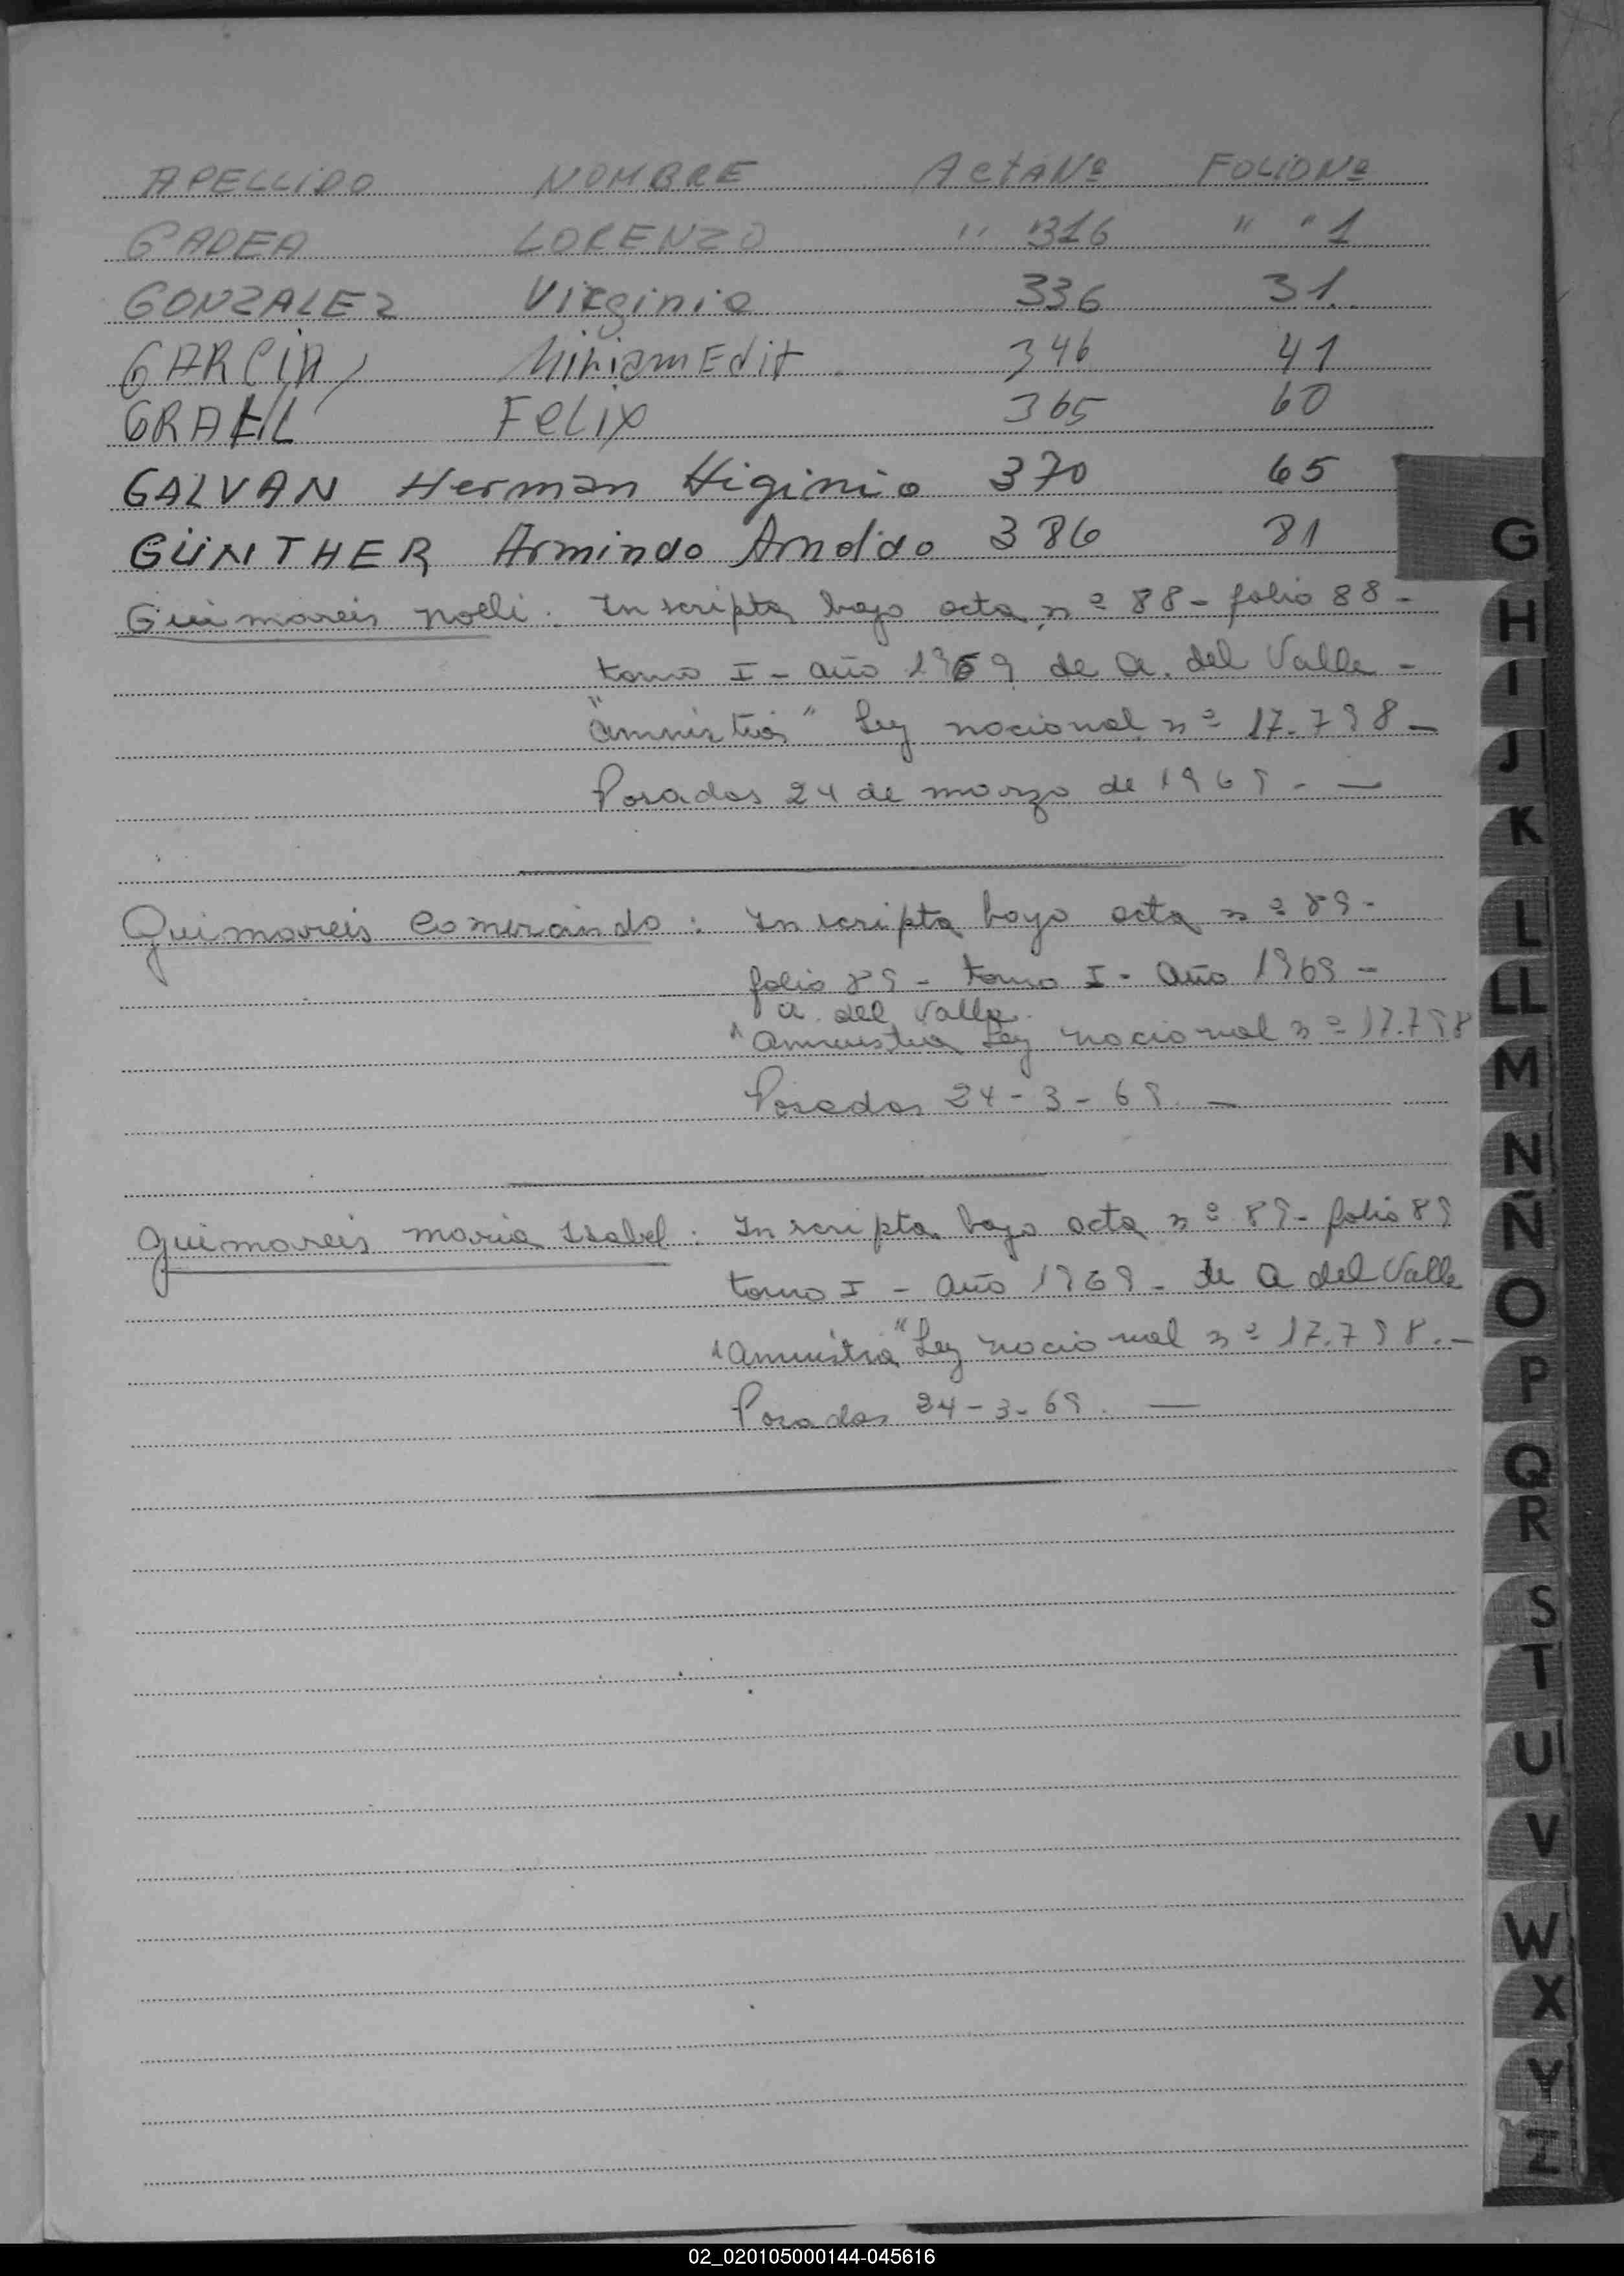 APELLIDO NOMBRE ACTA Nº FOLIO Nº
GADEA LORENZO " 316 " " 1
GONZALEZ Virginia 336 31.
GARCIA, Miriam Edit 346 41
GRAEL Felix 365 60
GALVAN Herman Higinio 370 65
GÜNTHER Armindo Arnoldo 386 81
Guimareis Noeli. Inscripta bajo acta nº 88 - folio 88 -
tomo I - año 1969 de A. del Valle -
"amnistia" Ley nacional nº 17.798 -
Posadas 24 de marzo de 1969. -
Guimareis : Inscripta bajo acta nº 89 -
folio 89 - tomo I - año 1969 -
A. del Valle.
"Amnistia Ley nacional nº 17.798
Posadas 24 - 3 - 69. -
Guimareis Maria Isabel : Inscripta bajo acta nº 89 - folio 89
tomo I - año 1969 - de A del Valle
"Amnistia" Ley nacional nº 17.798. -
Posadas 24 - 3 - 69. -
G
H
I
J
K
L
LL
M
N
Ñ
O
P
Q
R
S
T
U
V
W
X
Y
Z
02_020105000144-045616